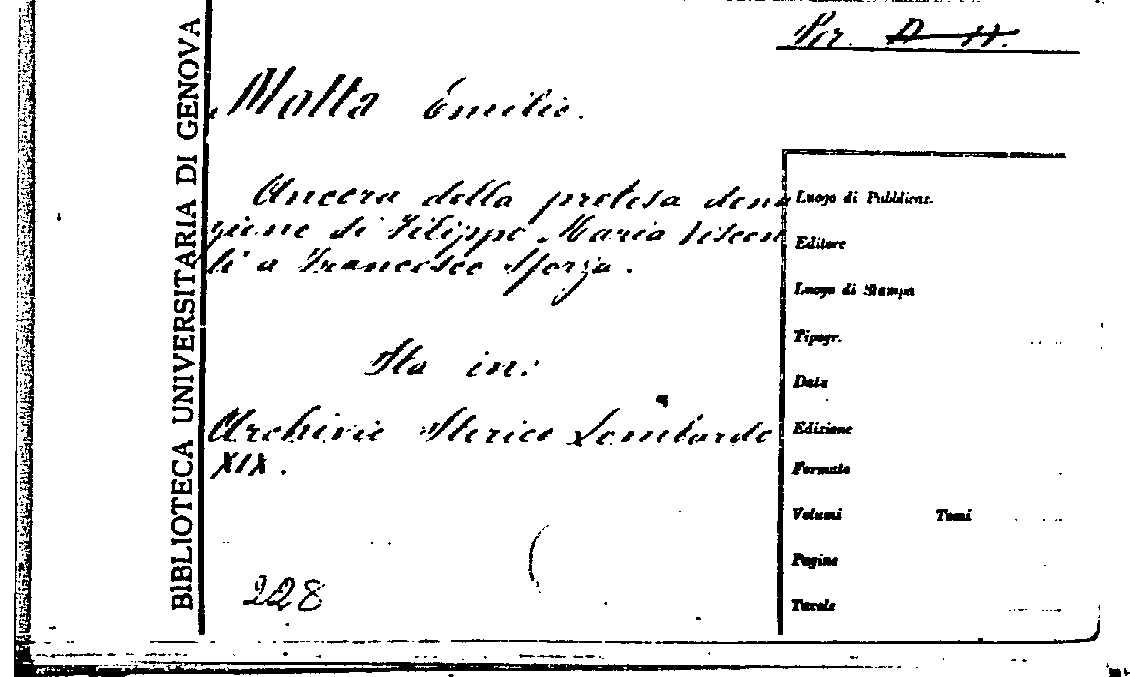 BIBLIOTECA UNIVERSITARIA DI GENOVA
Per. D 11.
Motta Emilio.
Ancora della pretesa dona
zione di Filippo Maria Viscon
ti a Francesco Sforza.
Sta in:
Archivio Storico Lombardo
XIX.
228
Luogo di Pubblicaz.
Editore
Luogo di Stampa
Tipogr.
Data
Edizione
Formato
Volumi Tomi
Pagine
Tavole